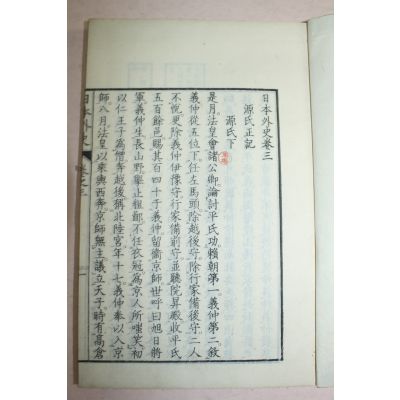 日本外史卷三
源氏正記
源氏下
是月法皇會諸公卿論討平氏功賴朝第一義仲第二敘
義仲從五位下任左馬頭除越後守除行家備後守二人
不悅更除義仲伊豫守行家備前守並聽院昇殿收平氏
五百餘邑賜其百四十于義仲留衞京師世呼曰旭日將
軍義仲生長山野擧止粗鄙不任衣冠爲京人所嗤笑初
以仁王子爲僧奔越後稱北陸宮年十七義仲奉以入京
師八月法皇以乘輿西奔京師無主議立天子時有高倉
日本外史 卷之三